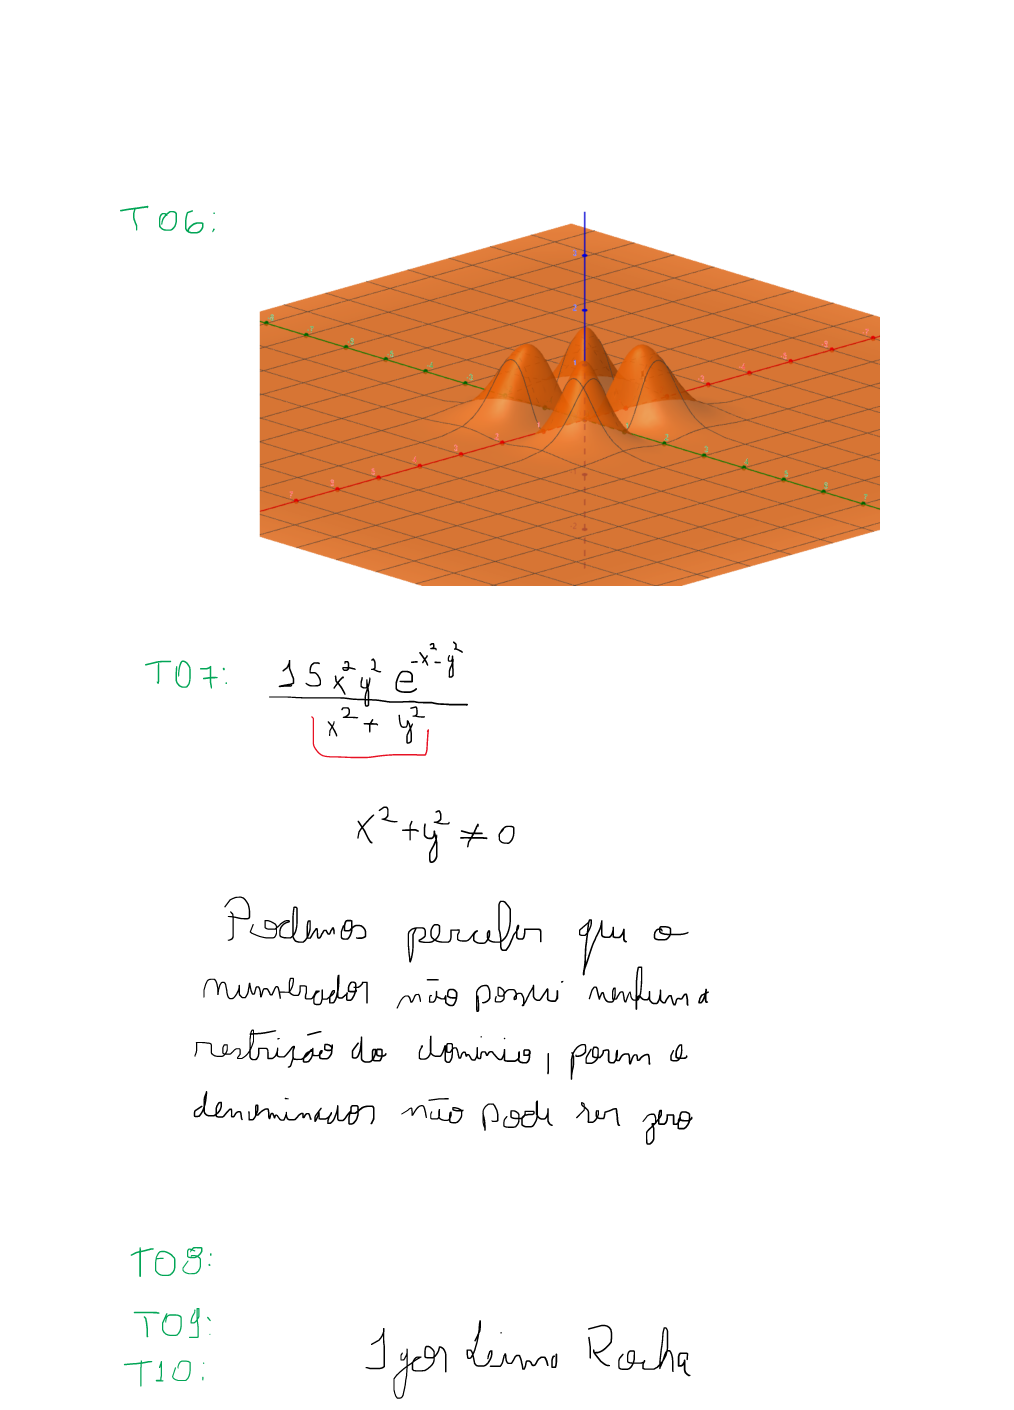 T06:
T07: 15x²y² e^(-x²-y²)
x² + y²
x² + y² ≠ 0
Podemos perceber que o
numerador não possui nenhuma
restrição do domínio, porem o
denominador não pode ser zero
T08:
T09:
T10: Igor Leimo Rocha